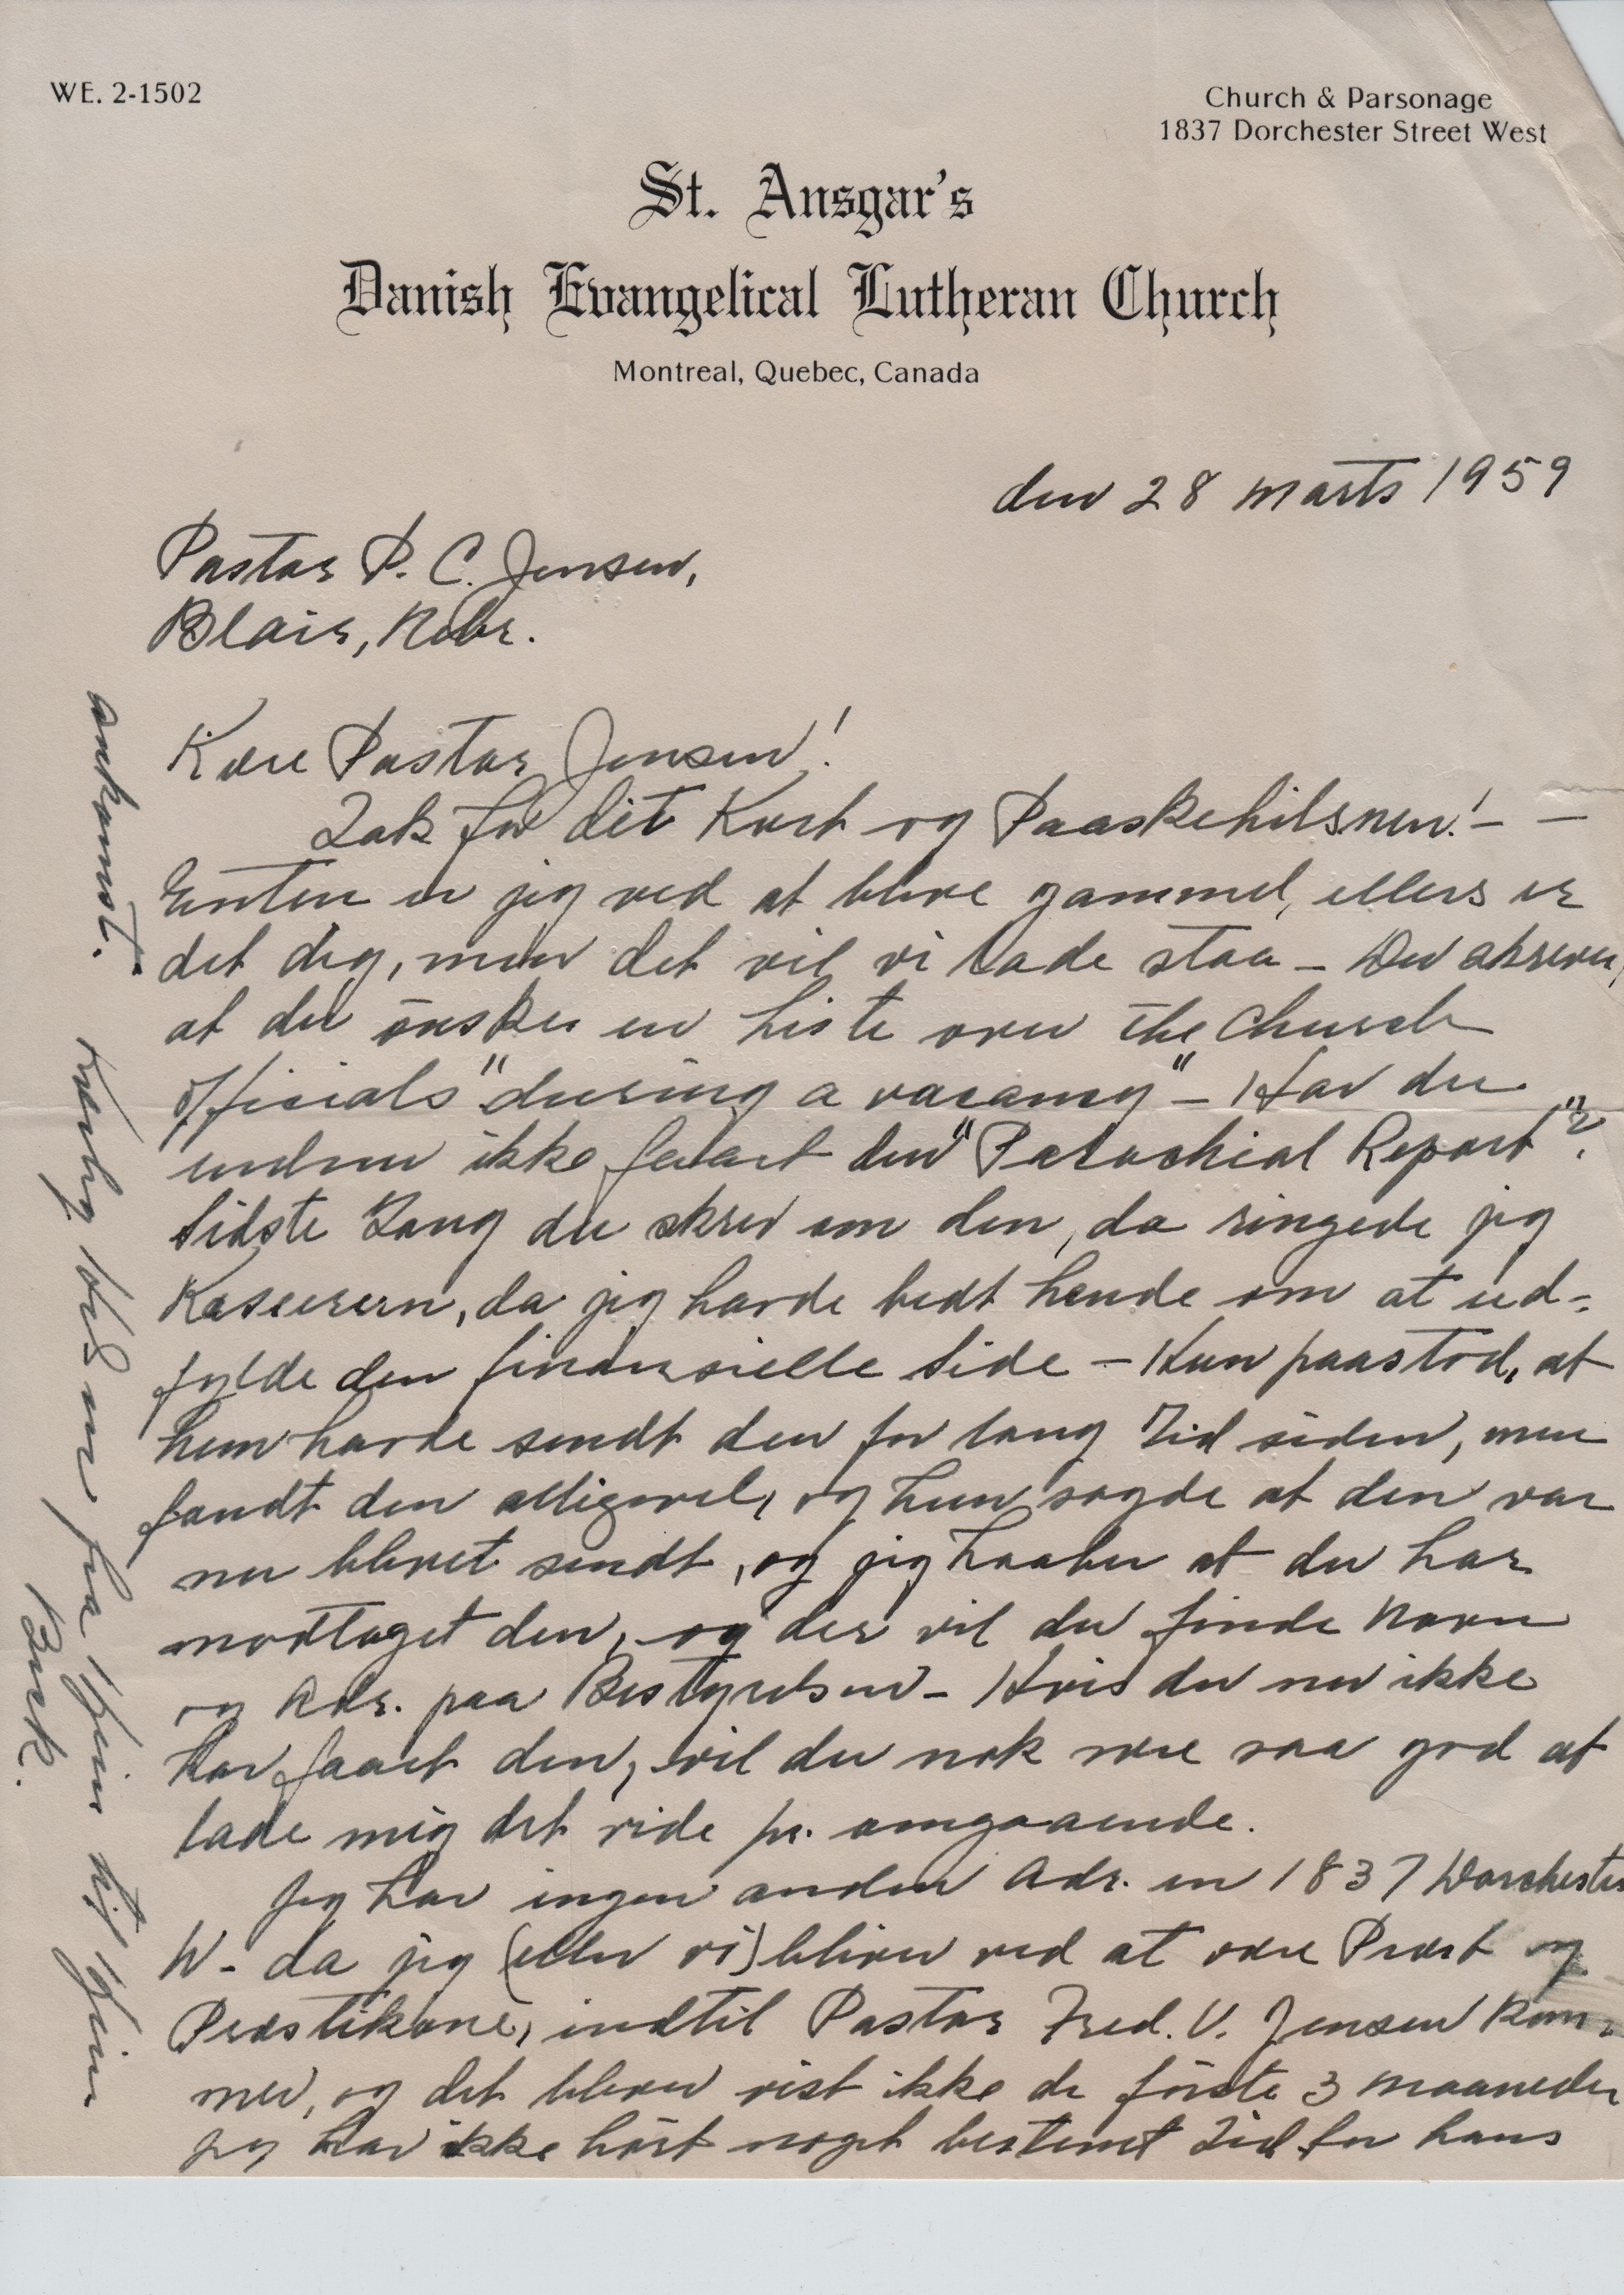 WE. 2-1502
Church & Parsonage
1837 Dorchester Street West
St. Ansgar's
Danish Evangelical Lutheran Church
Montreal, Quebec, Canada
den 28 marts 1959
Pastor P. C. Jensen,
Blair, Nebr.
Kære Pastor Jensen!
Tak for dit Kort og Paaskehilsnen! – –
Enten er jeg ved at blive gammel, ellers er
det dig, men det vil vi lade staa – Du skrever,
at du önsker en Liste over the Church
officials "during a vacancy" – Har du
endnu ikke faaet den "Parochial Report"?
Sidste Gang du skrev om den, da ringede jeg
Kasserern, da jeg havde bedt hende om at ud-
fylde den finansielle Side – Hun paastod, at
hun havde sendt den for lang Tid siden, men
fandt den alligevel, og hun sagde at den var
nu blevet sendt, og jeg haaber at du har
modtaget den, og der vil du finde Navn
og Adr. paa Bestyrelsen – Hvis du nu ikke
har faaet den, vil du nok være saa god at
lade mig det vide pr. omgaaende.
Jeg har ingen anden Adr. en 1837 Dorchester
W. da jeg (eller vi) bliver ved at være Præst og
Præstekone, indtil Pastor Fred. V. Jensen kom-
mer, og det bliver vist ikke de förste 3 maaneder
jeg har ikke hört noget bestemt Tid for hans
ankomst.
Kærlig Hilsen fra Hjem til Hjem